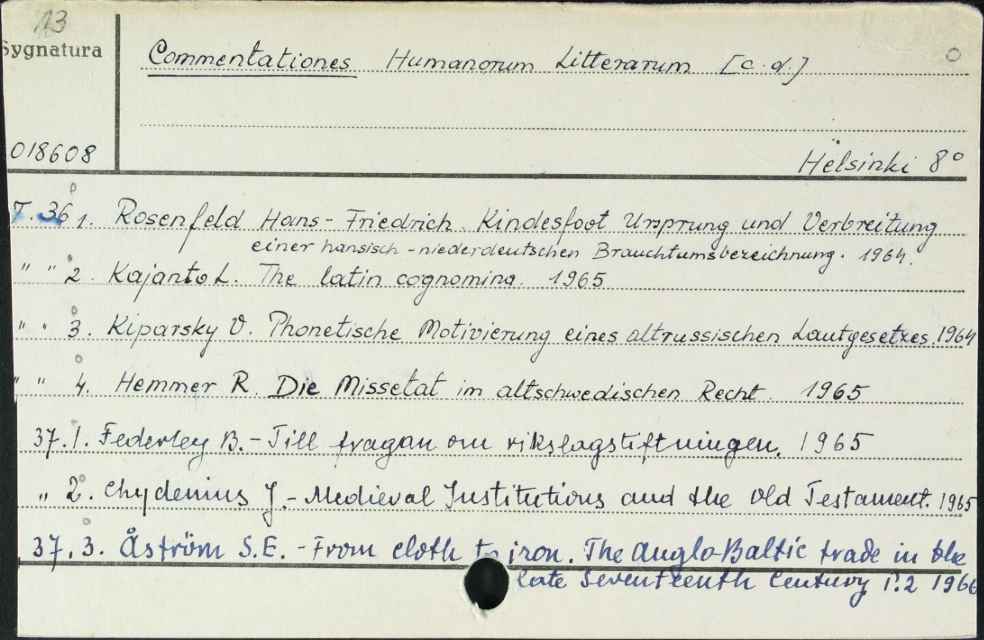 13
Sygnatura
Commentationes Humanorum Litterarum [c.d.]
018608
Helsinki 8°
T. 36 1. Rosenfeld Hans-Friedrich. Kindesfoot Ursprung und Verbreitung
einer hansisch-niederdeutschen Brauchtumsbezeichnung. 1964.
" " 2. Kajanto L. The latin cognomina. 1965
" . 3. Kiparsky V. Phonetische Motivierung eines altrussischen Lautgesetzes. 1964
" " 4. Hemmer R. Die Missetat im altschwedischen Recht. 1965
37.1. Federley B. - Till fragan om rikslagstiftningen. 1965
" 2. Chydenius J. - Medieval Institutions and the Old Testament. 1965
37.3. Åström S.E. - From cloth to iron. The Anglo-Baltic trade in the
late Seventeenth Century P.2 1966